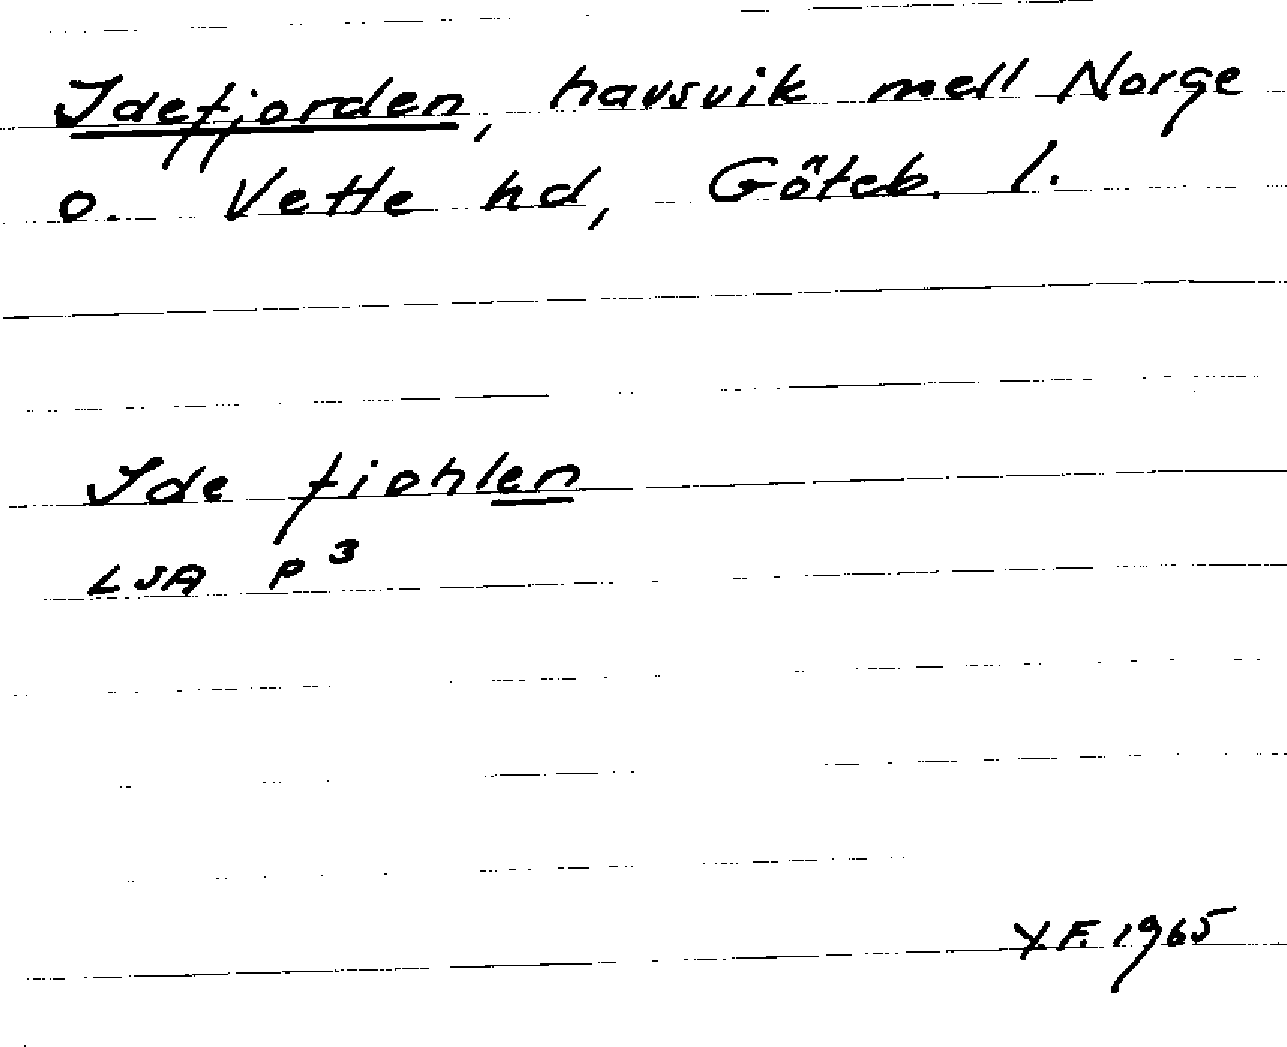 Idefjorden, havsvik mell Norge
o. Vette hd, Göteb. l.
Ide fiohlen
LSA P 3
Y.F. 1965